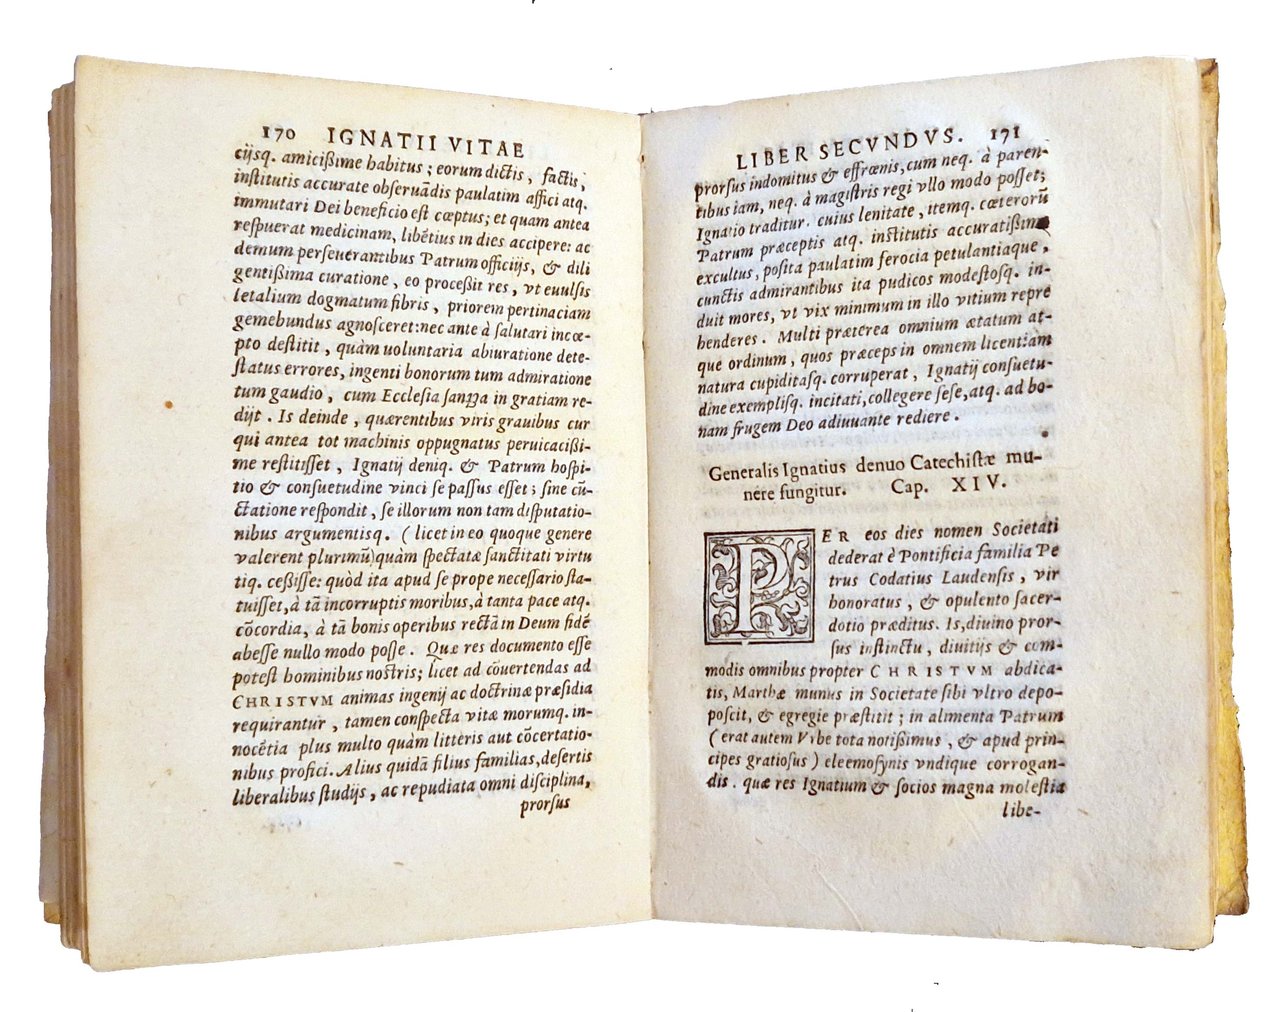 170 IGNATII VITAE
cijsq. amicißime habitus ; eorum dictis , factis,
institutis accurate obseruādis paulatim affici atq.
immutari Dei beneficio est cœptus; et quam antea
respuerat medicinam, libētius in dies accipere: ac
demum perseuerantibus Patrum officijs, & dili
gentißima curatione , eo proceßit res , vt euulsis
letalium dogmatum fibris , priorem pertinaciam
gemebundus agnosceret:nec ante à salutari incœ-
pto destitit , quàm uoluntaria abiuratione dete-
status errores, ingenti bonorum tum admiratione
tum gaudio , cum Ecclesia sancta in gratiam re-
dijt . Is deinde , quærentibus viris grauibus cur
qui antea tot machinis oppugnatus peruicacißi-
me restitisset , Ignatij deniq. & Patrum hospi-
tio & consuetudine vinci se passus esset ; sine cū-
ctatione respondit , se illorum non tam disputatio-
nibus argumentisq. ( licet in eo quoque genere
valerent plurimū) quàm spectatæ sanctitati virtu
tiq. ceßisse: quòd ita apud se prope necessario sta-
tuisset, à tā incorruptis moribus, à tanta pace atq.
cōcordia, à tā bonis operibus rectā in Deum fidē
abesse nullo modo posse . Quæ res documento esse
potest hominibus nostris; licet ad cōuertendas ad
CHRISTVM animas ingenij ac doctrinæ præsidia
requirantur , tamen conspecta vitæ morumq. in-
nocētia plus multo quàm litteris aut cōcertatio-
nibus profici. Alius quidā filius familias, desertis
liberalibus studijs , ac repudiata omni disciplina,
prorsus
LIBER SECVNDVS. 171
prorsus indomitus & effrœnis, cum neq. à paren-
tibus iam, neq. à magistris regi vllo modo posset;
Ignatio traditur. cuius lenitate , itemq. cæterorū
Patrum præceptis atq. institutis accuratißime
excultus, posita paulatim ferocia petulantiaque ,
cunctis admirantibus ita pudicos modestosq. in-
duit mores, vt vix minimum in illo vitium repre
henderes . Multi præterea omnium ætatum at-
que ordinum , quos præceps in omnem licentiam
natura cupiditasq. corruperat , Ignatij consuetu-
dine exemplisq. incitati, collegere sese, atq. ad bo-
nam frugem Deo adiuuante rediere .
Generalis Ignatius denuo Catechistæ mu-
nere fungitur. Cap. XIV.
PER eos dies nomen Societati
dederat è Pontificia familia Pe
trus Codatius Laudensis , vir
honoratus , & opulento sacer-
dotio præditus. Is, diuino pror-
sus instinctu , diuitijs & com-
modis omnibus propter CHRISTVM abdica-
tis, Marthæ munus in Societate sibi vltro depo-
poscit, & egregie præstitit ; in alimenta Patrum
( erat autem Vrbe tota notißimus , & apud prin-
cipes gratiosus ) eleemosynis vndique corrogan-
dis . quæ res Ignatium & socios magna molestia
libe-